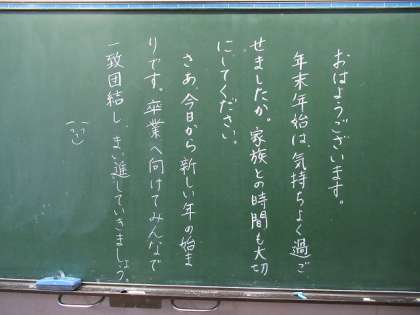 おはようございます。
年末年始は、気持ちよく過ご
せましたか。家族との時間も大切
にしてください。
さあ、今日から新しい年の始ま
りです。卒業へ向けてみんなで
一致団結し、まい進していきましょう